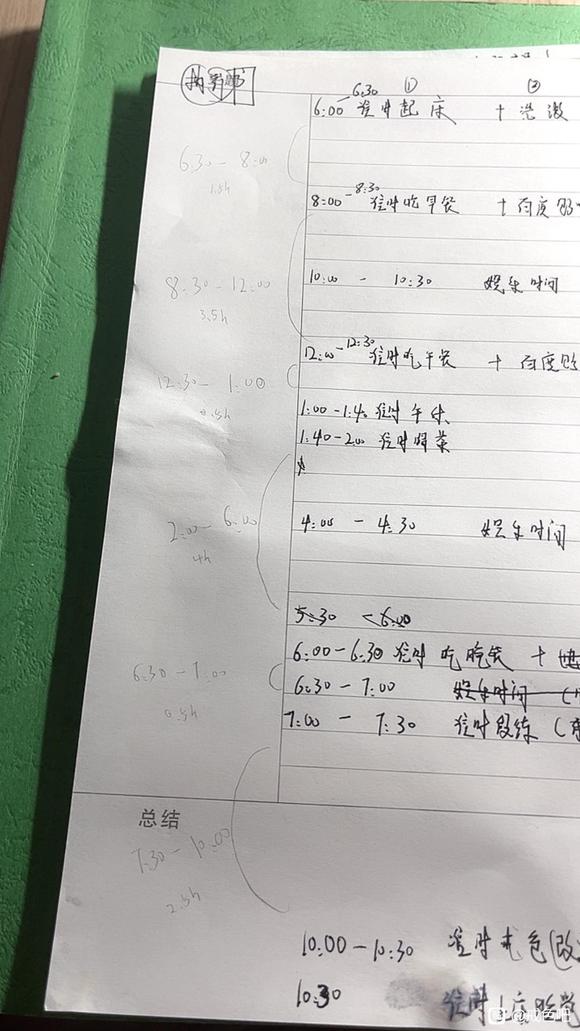 ① ②
6:00-6:30 准时起床 +
6:30-8:00
1.5h
8:00-8:30 准时吃早餐 +百度贴
8:30-12:00
3.5h
10:00 - 10:30 娱乐时间
12:00-12:30 准时吃午餐 +百度贴
12:30-1:00
0.5h
1:00-1:40 准时午休
1:40-2:00 准时喝茶
2:00-6:00
4h
4:00 - 4:30 娱乐时间
5:30 - 6:00
6:00-6:30 准时吃晚餐 +
6:30-7:00
0.5h
6:30-7:00 娱乐时间
7:00 - 7:30 准时锻练
总结
7:30-10:00
2.5h
10:00-10:30 准时戒色(改
10:30 准时上床睡觉
@戒色吧